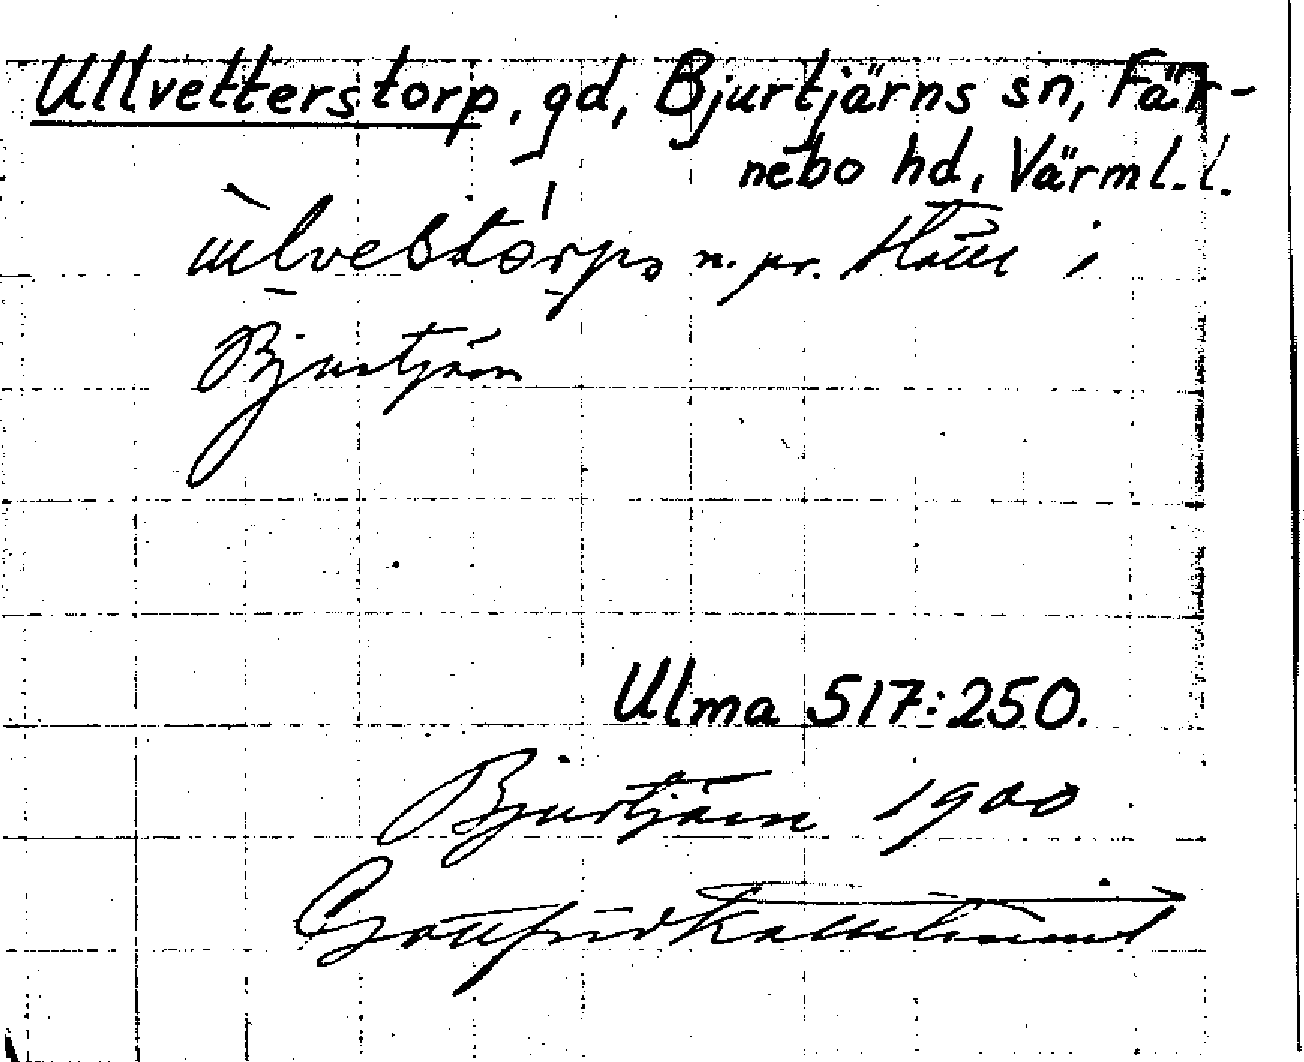 Ullvetterstorp, gd, Bjurtjärns sn, Fär-
nebo hd, Värml. l.
ulvestorps n. pr. i
Bjurtjärn
Ulma 517:250.
Bjurtjärn 1900
Gottfrid Kallstenius